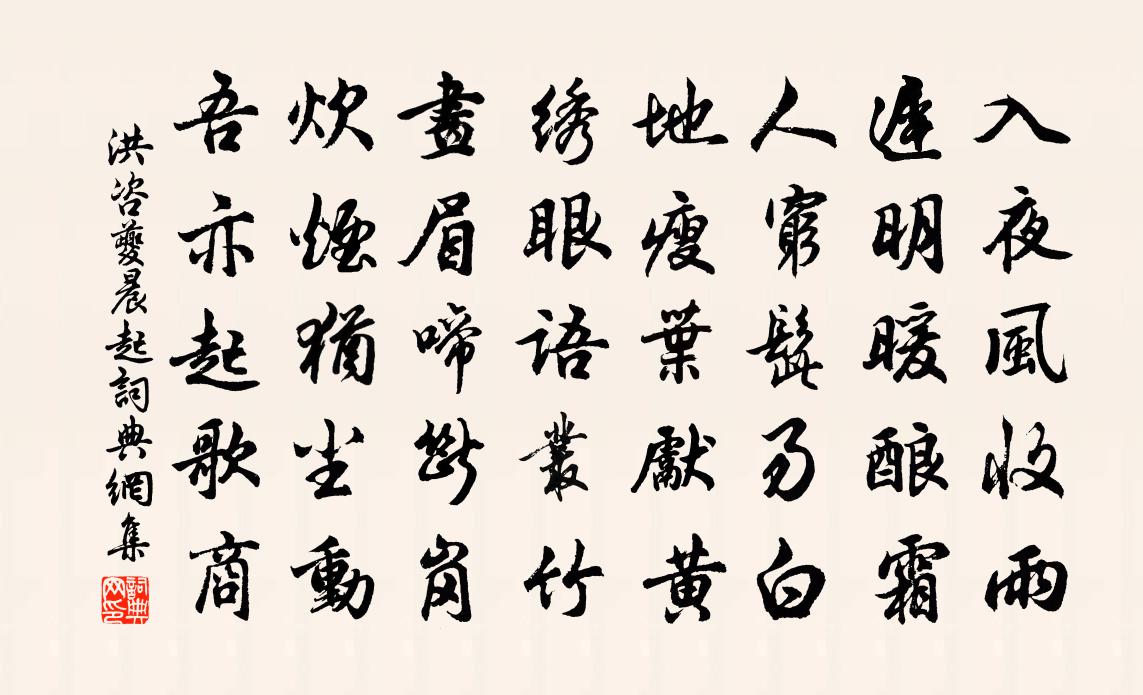 入夜風收雨
遲明暖酿霜
人窮髭易白
地瘦葉獻黄
绣眼語叢竹
畫眉啼斷岗
炊煙猶坐動
吾亦起歌商
洪咨夔晨起詞典網集
詞典网印